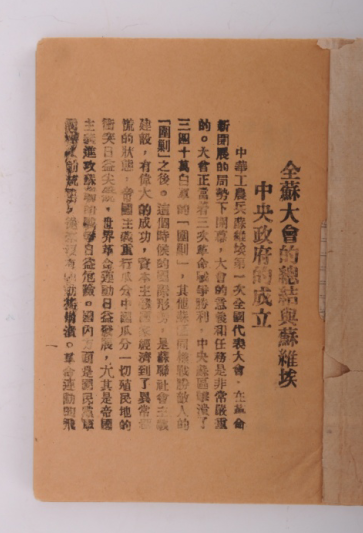 全蘇大會的總結與蘇維埃
中央政府的成立
中華工農兵蘇維埃第一次全國代表大會，在革命
新開展的局勢下開幕，大會的意義和任務是非常嚴重
的。大會正當着三次革命戰爭勝利，中央蘇區擊潰了
三四十萬白軍的「圍剿」，其他蘇區同樣戰勝敵人的
「圍剿」之後。這個時候的國際形勢，是蘇聯社會主義
建設，有偉大的成功，資本主義國家經濟到了異常
慌的狀態，帝國主義重行瓜分中國瓜分一切殖民地的
衝突日益尖銳，世界革命運動日益發展，尤其是帝國
主義進攻蘇聯的戰爭日益危險。國內方面是國民黨軍
的統治，崩潰。革命運動的飛
一